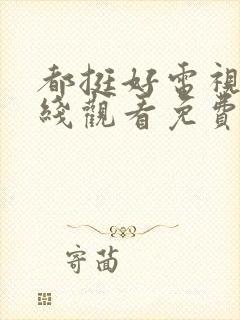 都挺好電視
綫觀看免費
寄茴